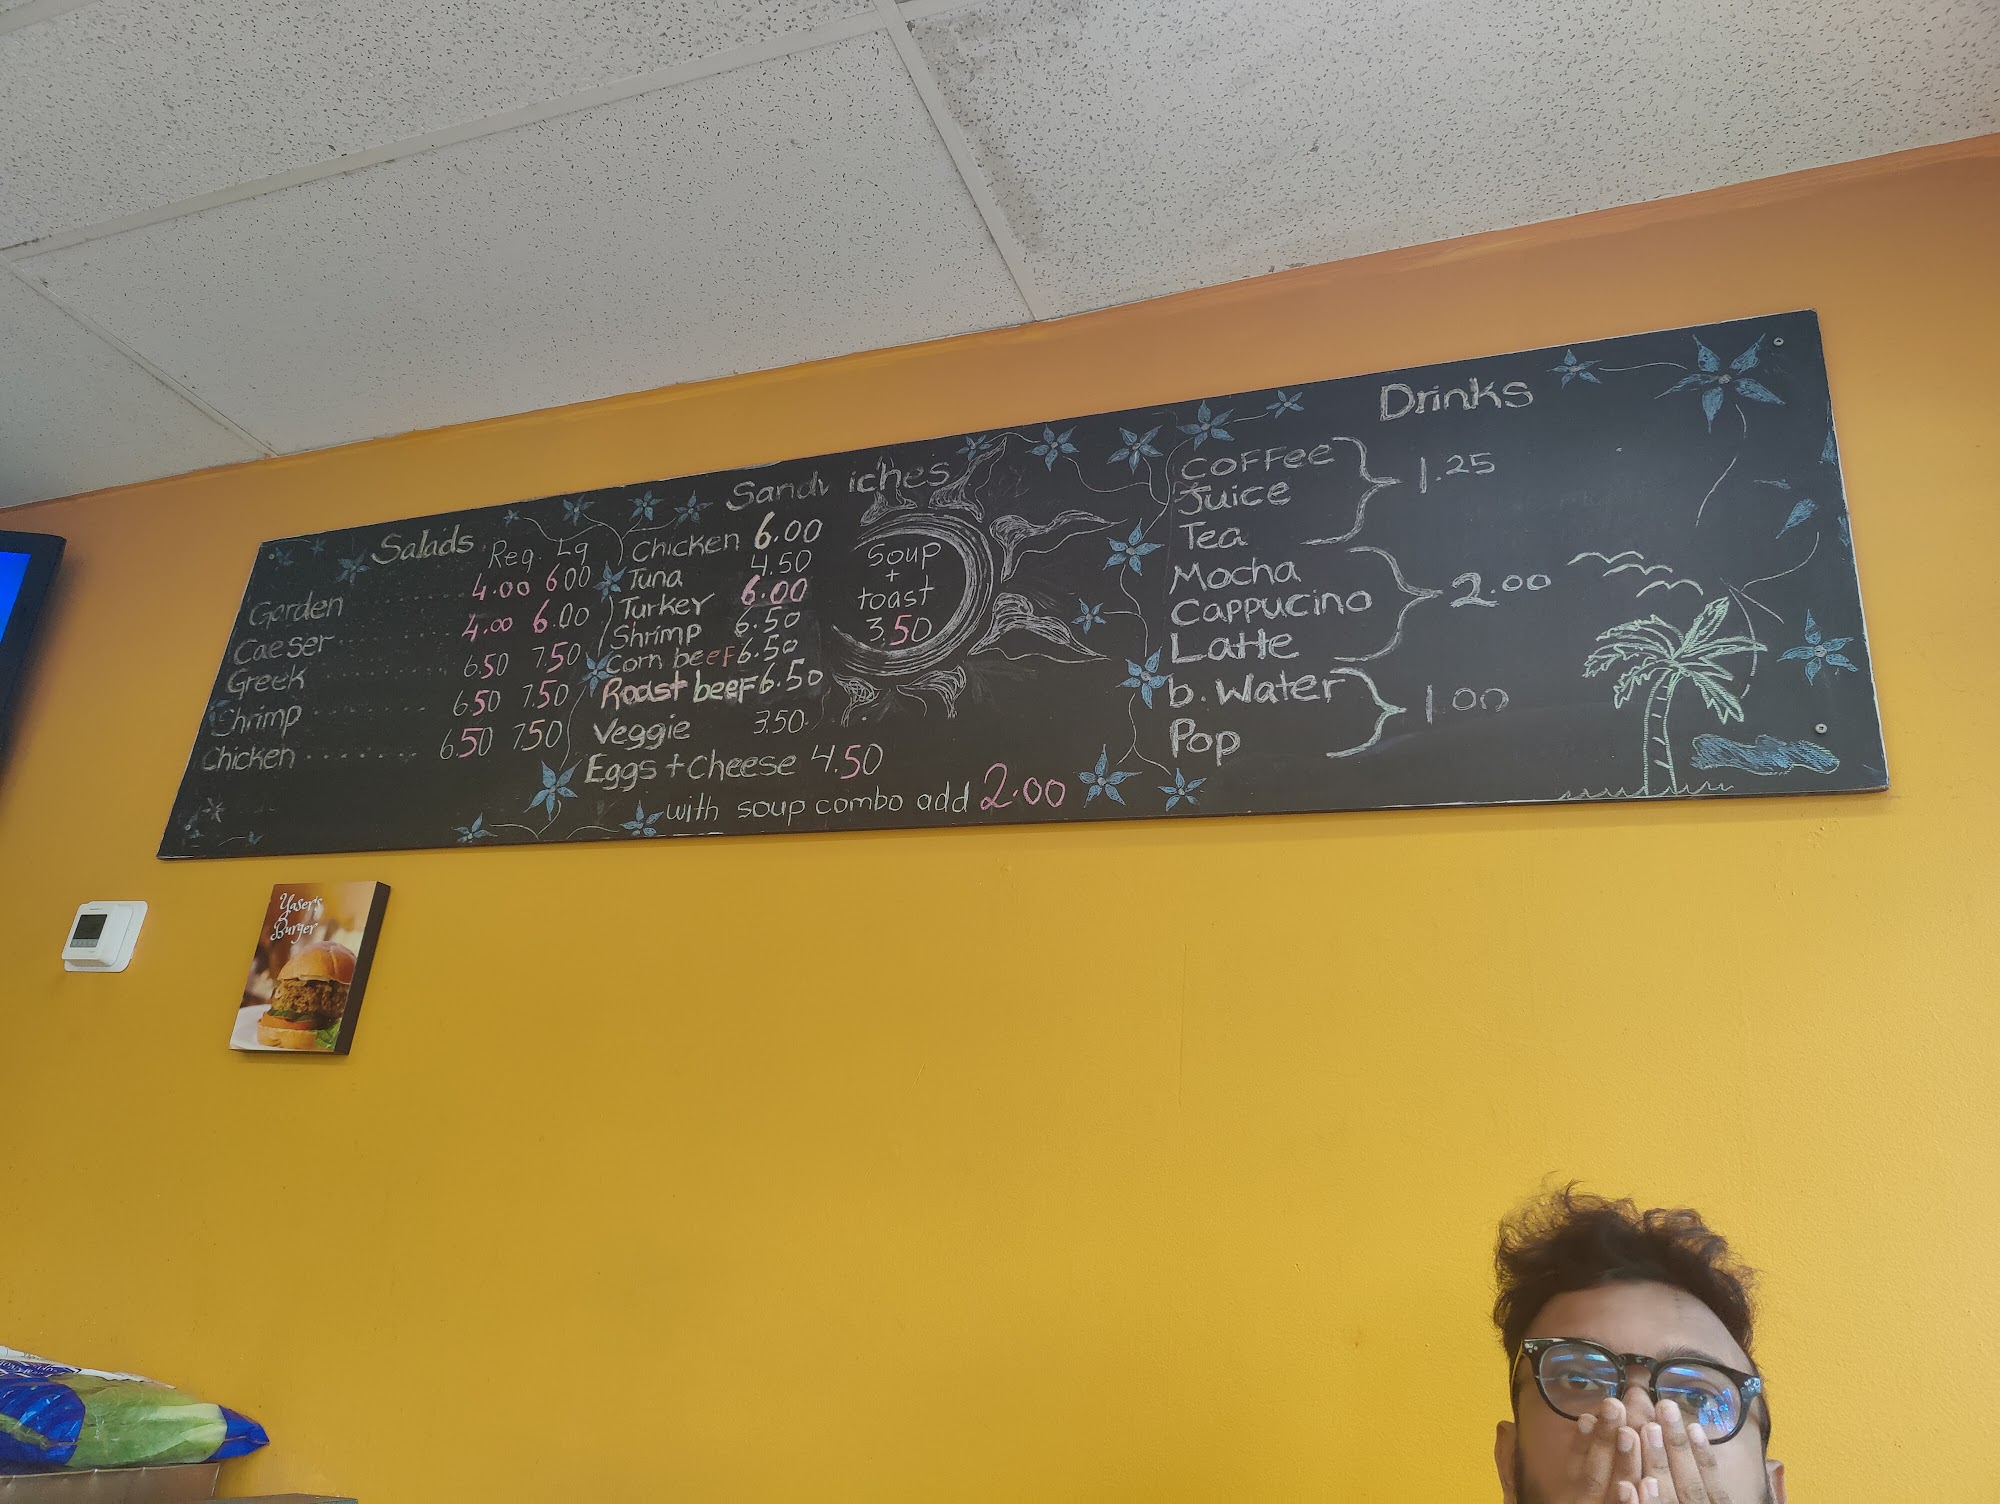 Salads
Reg. Lg
Garden ........ 4.00 6.00
Caeser ........ 4.00 6.00
Greek ........ 6.50 7.50
Shrimp ........ 6.50 7.50
Chicken ........ 6.50 7.50
Sandwiches
Chicken 6.00
Tuna 4.50
Turkey 6.00
Shrimp 6.50
Corn beef 6.50
Roast beef 6.50
Veggie 3.50
Eggs + Cheese 4.50
with soup combo add 2.00
Soup
+
toast
3.50
Drinks
Coffee
Juice
Tea
1.25
Mocha
Cappucino
Latte
2.00
b. Water
Pop
1.00
Yaser's
Burger